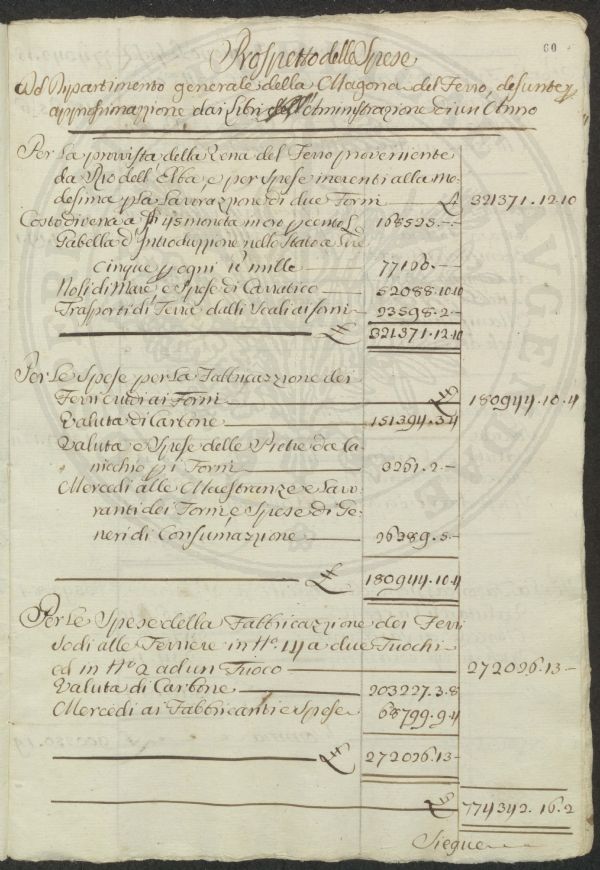 60
Prospetto delle Spese
del Dipartimento generale della Magona del Ferro, desunte p
approssimazione dai Libri dell'Aministrazione di un Anno
Per la provvista della Vena del Ferro proveniente
da Rio dell'Elba, e per spese inerenti alla me-
desima p la Lavorazione di due Forni £ 321371.12.10
Costo di vena a moneta 168525.-.-
Gabella d'Introduzzione nello Stato a Lire
cinque p ogni mille 77160.-
Noli di Mare e Spese di Carratico 52088.10.10
Trasporti di Terra dalli Scali ai forni 23598.2.-
£ 321371.12.10
Per le Spese per la Fabbricazione dei
Ferri crudi ai Forni £ 180944.10.4
Valuta di Carbone 151394.3.4
Valuta e Spese delle Pietre da la-
nicchio p i Forni 3261.2.-
Mercedi alle Maestranze e Lavo-
ranti dei Forni, e Spese di Ge-
neri di Consumazione 26289.5.-
£ 180944.10.4
Per le Spese della Fabbricazione dei Ferri
sodi alle Ferriere in N.º 14 a due Fuochi
ed in N.º 2 ad un Fuoco 272026.13.-
Valuta di Carbone 203227.3.8
Mercedi ai Fabbricanti e Spese 68799.9.4
£ 272026.13.-
£ 774342.16.2
Siegue